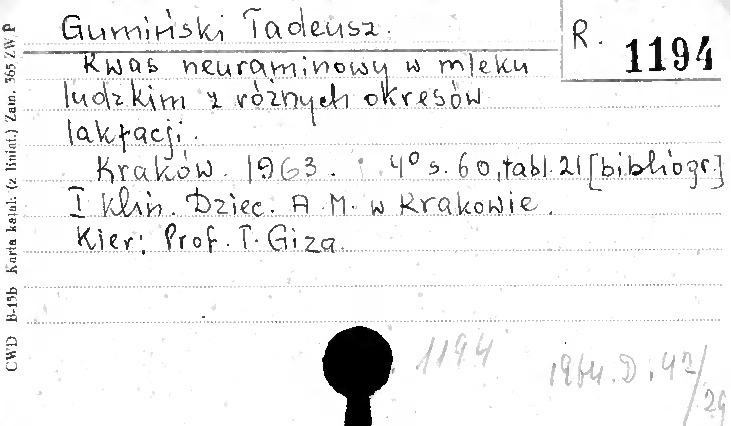 Gumiński Tadeusz.
R. 1194
Kwas neuraminowy w mleku
ludzkim z różnych okresów
laktacji.
Kraków. 1963. 4° s. 60, tabl. 21 [bibliogr.]
I Klin. Dziec. A. M. w Krakowie.
Kier: Prof. T. Giza.
1194
1964. D. 42/29
CWD B-15b Karta katal. (z liniat.) Zam. 365 ZWP